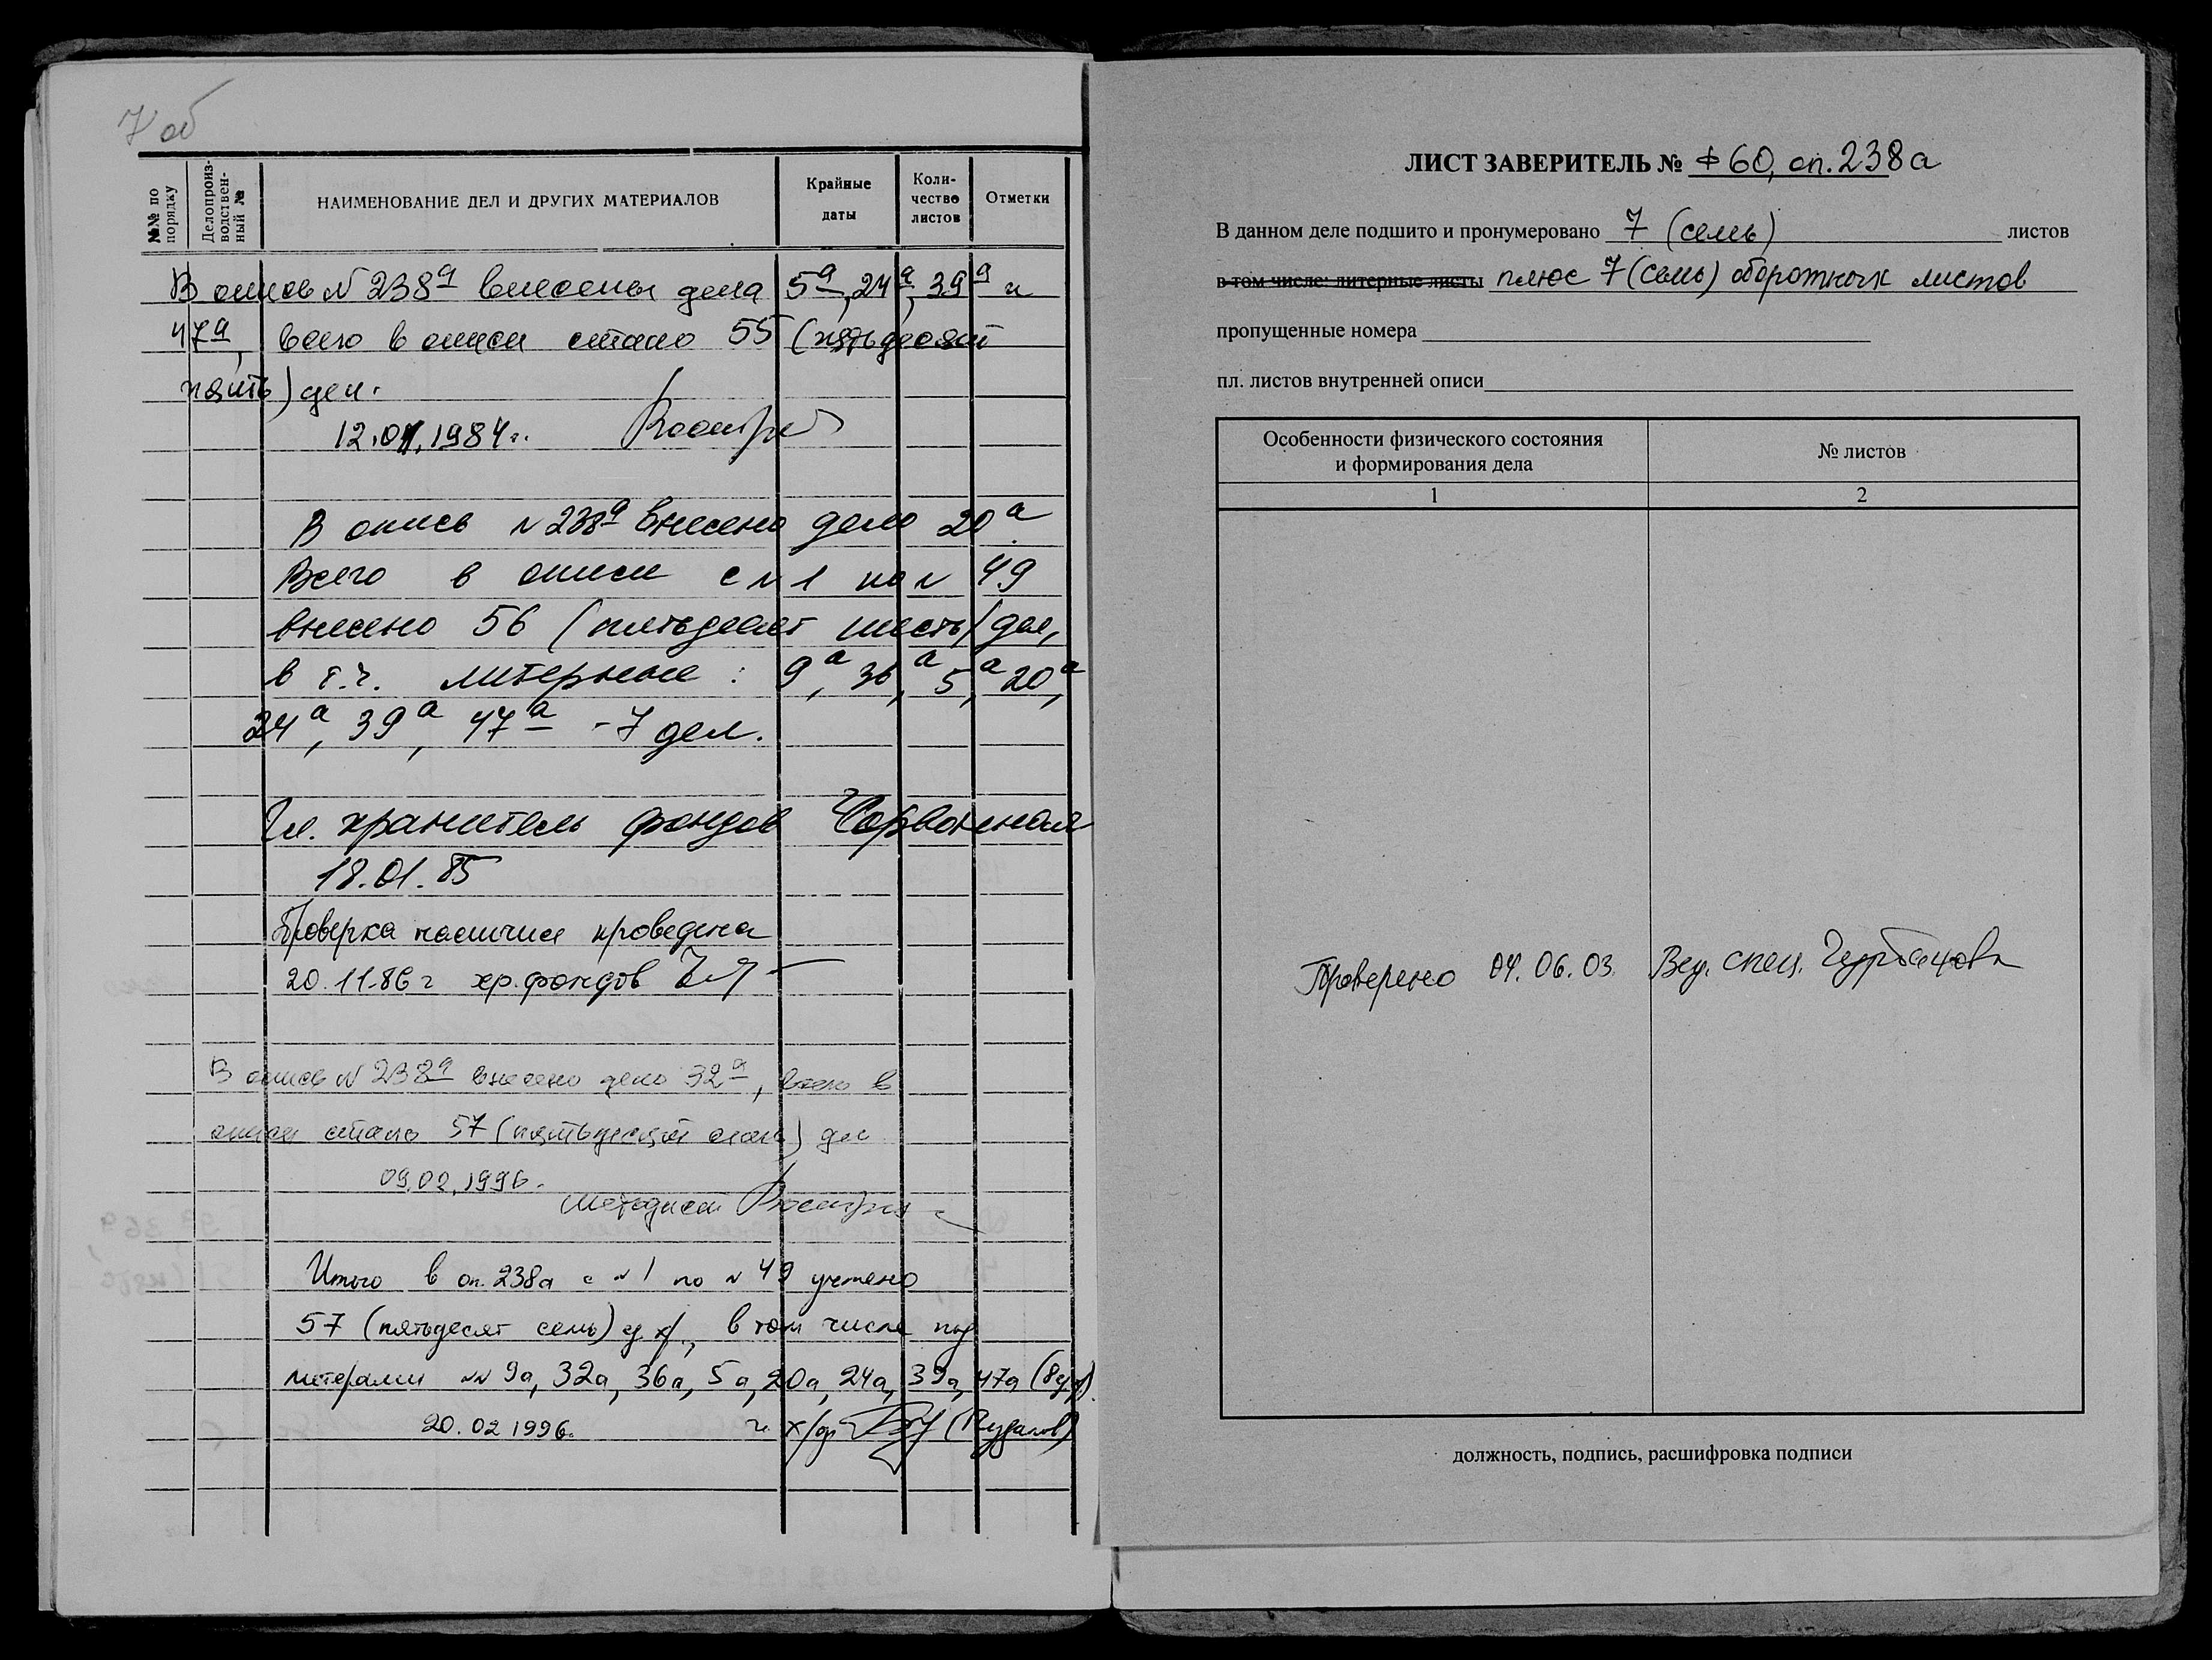 7 об
№№ по порядку
Делопроиз-
водствен-
ный №
НАИМЕНОВАНИЕ ДЕЛ И ДРУГИХ МАТЕРИАЛОВ
Крайные
даты
Коли-
чество
листов
Отметки
В опись №238а внесены дела 5а, 24а, 39а и
47а, всего в описи стало 55 (пятьдесят
пять) дел.
12.01.1984г.
В опись №238а внесено дело 20а.
Всего в описи с №1 по № 49
внесено 56 (пятьдесят шесть) дел,
в т.ч. литерные: 9а, 36а, 5а, 20а,
24а, 39а, 47а - 7 дел.
Гл. хранитель фондов
18.01.85
Проверка наличия проведена
20.11.86г хр. фондов
В опись №238а внесено дело 32а, всего в
описи стало 57 (пятьдесят семь) дел
09.02.1996.
методист
Итого в оп. 238а с №1 по №49 учтено
57 (пятьдесят семь) ед. хр., в том числе под
литерами №№ 9а, 32а, 36а, 5а, 20а, 24а, 39а, 47а (8 ед.хр).
20.02 1996г.
ЛИСТ ЗАВЕРИТЕЛЬ № Ф 60, оп. 238а
В данном деле подшито и пронумеровано 7 (семь) листов
в том числе: литерные листы плюс 7 (семь) оборотных листов
пропущенные номера
пл. листов внутренней описи
Особенности физического состояния
и формирования дела
№ листов
1 2
Проверено 04.06.03. Вед. спец.
должность, подпись, расшифровка подписи